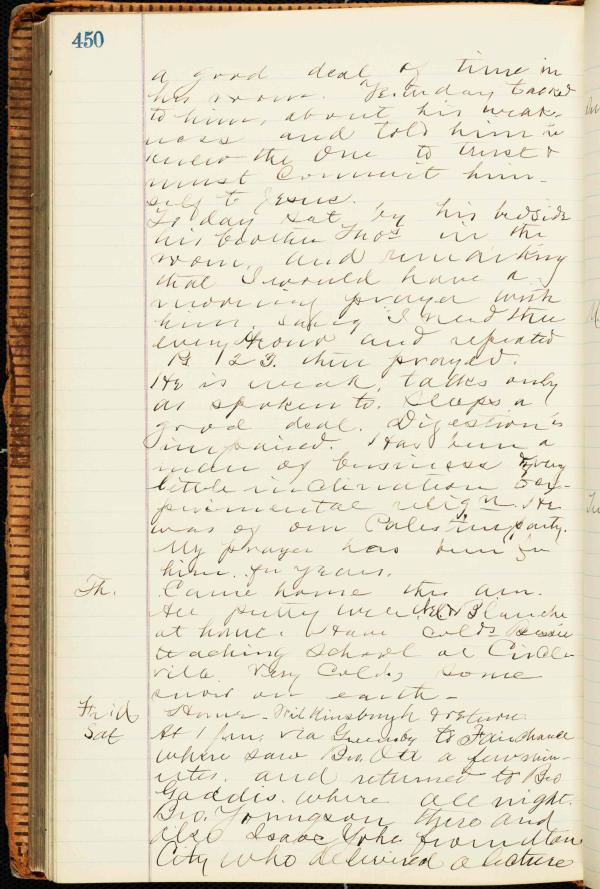 450
a good deal of time in
his room. Yesturday talked
to him, about his weak-
ness and told him he
knew the One to trust &
must Commit him-
self to Jesus.
To day sat by his bedside
his brother Thos in the
room, and remarking
that I would have a
morning prayer with
him, saying I need thee
every Hour and repeated
Ps 123. then prayed.
He is weak, talks only
as spoken to. Sleeps a
good deal. Digestion is
impaired. Has been a
man of business & very
little inclination to ex-
perimental relign. He
was of our Palestine party.
My prayer has been for
him for years.
Th. Came home this a.m.
All pretty well. & Blanche
at home. Have colds Bessie
teaching school at Circle-
ville. Very Cold, some
snow on earth -
Frid Home - Wilkinsburgh & return.
Sat At 1 p.m. via Greensby to Fairchance
where saw Bro. Ott a few min-
utes. and returned to Bro
Gaddis. where all night.
Bro. Youngson there and
also Isaac Yohe from
City who delivered a lecture